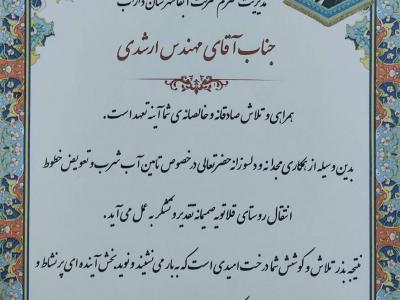 مدیریت محترم شرکت آبفا شهرستان داراب
جناب آقای مهندس ارشدی
همراهی و تلاش صادقانه و خالصانه ی شما آینه تعهد است.
بدین وسیله از همکاری مجدانه و دلسوزانه حضرتعالی در خصوص تامین آب شرب و تعویض خطوط
انتقال روستای قلاتویه صمیمانه تقدیر و تشکر به عمل می آید.
نتیجه بذر تلاش و کوشش شما درخت امیدی است که به بار می نشیند و نوید بخش آینده ای پر نشاط و